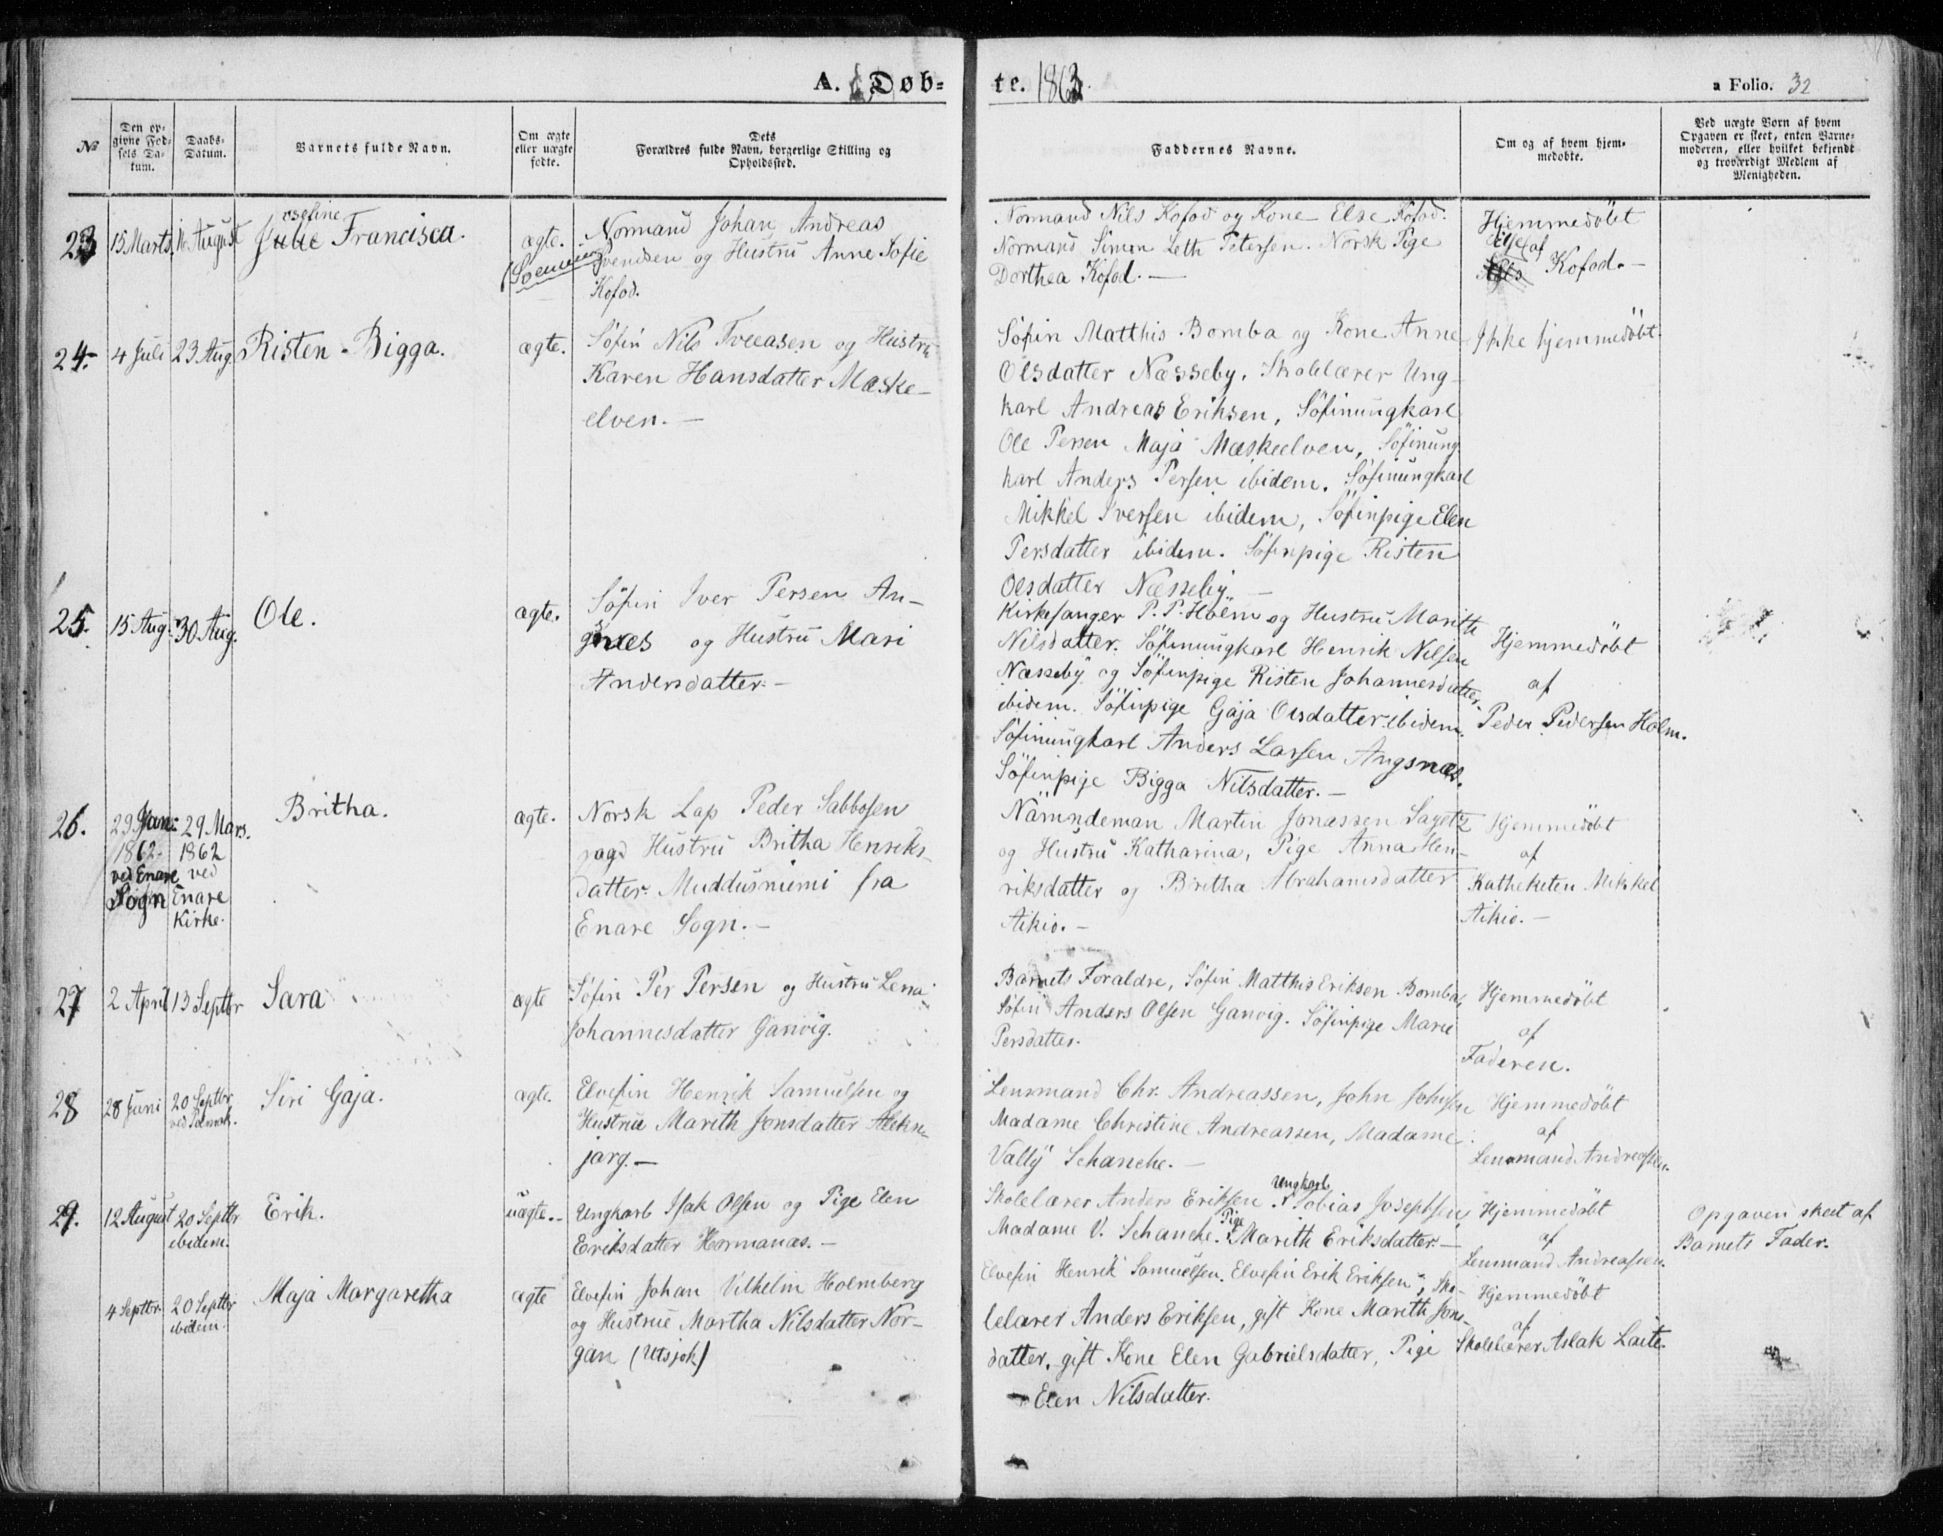 A. Døb-
te. 1863.
a Folio. 32
No
Den op-
givne Fød-
sels Da-
tum.
Daabs-
Datum.
Barnets fulde Navn.
Om ægte
eller uægte
fødte.
Dets
Forældres fulde Navn, borgerlige Stilling og
Opholdssted.
Faddernes Navne.
Om og af hvem hjem-
medøbte.
Ved uægte Børn af hvem
Opgaven er skeet, enten Barne-
moderen, eller hvilket bekjendt
og troværdigt Medlem af
Menigheden.
23
15 Marts.
August
osefine
Julie Francisca.
ægte.
Normand Johan Andreas
Svendsen og Hustru Anne Sofie
Kofod.
Normand Nils Kofod og Kone Else Kofod.
Normand Simon Leth Petersen. Norsk Pige
Dorthea Kofod. —
Hjemmedöbt
af
Kofod. —
24.
4 Juli
23 Aug.
Risten - Bigga.
ægte.
Söfin Nils Iveeasen og Hustru
Karen Hansdatter Mæske-
elven. —
Söfin Matthis Bomba og Kone Anne
Olsdatter Næsseby. Skolelærer Ung-
karl Andreas Eriksen, Söfinungkarl
Ole Persen Maja Mæskeelven, Söfinung
karl Anders Persen ibidem. Söfinungkarl
Mikkel Iversen ibidem, Söfinpige Elen
Persdatter ibidem. Söfinpige Risten
Olsdatter Næsseby. —
Ikke hjemmedöbt.
25.
15 Aug.
30 Aug.
Ole.
ægte.
Söfin Iver Persen An-
gsnæs og Hustru Mari
Andersdatter. —
Kirkesanger P. P. Holm og Hustru Marith
Nilsdatter. Söfinungkarl Henrik Nilsen
Næsseby og Söfinpige Risten Johannesdatter
ibidem. Söfinpige Gaja Olsdatter ibidem.
Söfinungkarl Anders Larsen Angsnæs.
Söfinpige Bigga Nilsdatter. —
Hjemmedöbt
af
Peder Pedersen Holm.
26.
29 Jan:
1862.
ved Enare
Sogn
29 Mars.
1862
ved
Enare
Kirke.
Britha.
ægte.
Norsk Lap Peder Sabbosen
og Hustru Britha Henriks-
datter Muddusniemi fra
Enare Sogn. —
Nämndeman Martin Jonassen Sagetz
og Hustru Katharina, Pige Anna Hen-
riksdatter og Britha Abrahamsdatter
Aikio. —
Hjemmedöbt
af
Katheketen Mikkel
Aikio. —
27
2 April
13 Septbr
Sara
ægte
Söfin Per Persen og Hustru Lena
Johannesdatter Ganvig.
Barnets Foraldre, Söfin Matthis Eriksen Bomba,
Söfin Anders Olsen Ganvig. Söfinpige Marie
Persdatter.
Hjemmedöbt
af
Faderen.
28
28 Juni
20 Septbr
ved Polmak.
Siri Gaja.
ægte.
Elvefin Henrik Samuelsen og
Hustrue Marith Jonsdatter Alekn-
jarg. —
Lensmand Chr. Andreassen, John Johnsen
Madame Christine Andreassen, Madame
Vally Schanche. —
Hjemmedöbt
af
Lensmand Andreassen.
29.
12 August
20 Septbr
ibidem.
Erik.
uægte. -
Ungkarl Isak Olsen og Pige Elen
Eriksdatter Hormanæs. —
Skolelærer Anders Eriksen. Ungkarl Tobias Josephsen,
Madame V. Schanche. Pige Marith Eriksdatter. —
Hjemmedöbt
af
Lensmand Andreassen.
Opgaven skeet af
Barnets Fader.
4 Septbr.
20 Septbr
ibidem.
Maja Margaretha
ægte
Elvefin Johan Vilhelm Holmberg
og Hustrue Martha Nilsdatter Nor-
gan (Utsjok)
Elvefin Henrik Samuelsen. Elvefin Erik Eriksen, Sko-
lelærer Anders Eriksen, gift Kone Marith Jons-
datter, gift Kone Elen Gabrielsdatter, Pige
Elen Nilsdatter.
Hjemmedöbt
af
Skolelærer Aslak Laiti.